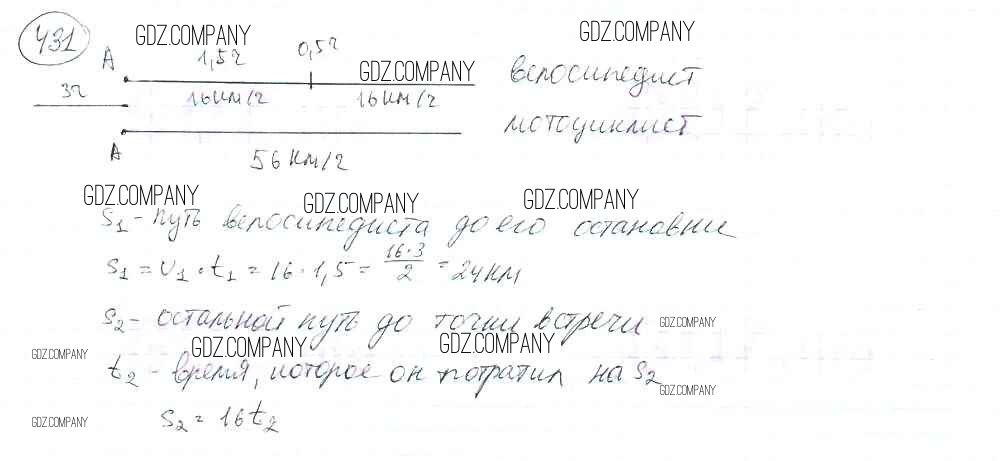 431
GDZ.COMPANY GDZ.COMPANY
A 1,5ч 0,5ч GDZ.COMPANY велосипедист
3ч 16км/ч 16км/ч
мотоциклист
A 56км/ч
GDZ.COMPANY GDZ.COMPANY GDZ.COMPANY
S1 - путь велосипедиста до его остановки
S1 = υ1 · t1 = 16 · 1,5 = 16·3/2 = 24км
S2 - остальной путь до точки встречи GDZ.COMPANY
GDZ.COMPANY GDZ.COMPANY GDZ.COMPANY
t2 - время, которое он потратил на S2
GDZ.COMPANY
GDZ.COMPANY S2 = 16t2